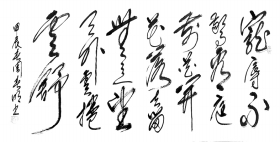 寵辱不
驚看庭
前花開
花落去留
無意望
天外雲捲
雲舒
甲辰